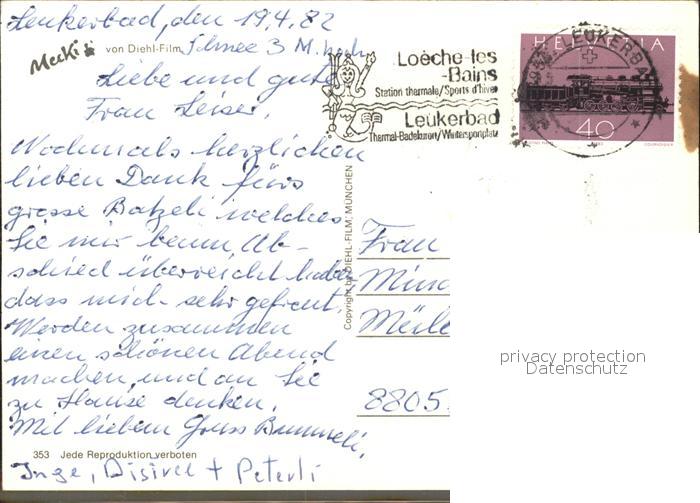 Leukerbad, den 19.4.82
Mecki
von Diehl-Film
Schnee 3 M. hoch
Liebe und gute
Frau Leiser,
Nochmals herzlichen
lieben Dank fürs
grosse Batzeli welches
Sie mir beim Ab-
schied überreicht haben,
dass mich sehr gefreut.
Werden zusammen
einen schönen Abend
machen, und an Sie
zu Hause denken.
Mit lieben Gruss Bummeli,
Inge, + Peterli
353 Jede Reproduktion verboten
Copyright by DIEHL-FILM, MÜNCHEN
Loèche-les
-Bains
Station thermale/Sports d'hiver
Leukerbad
Thermal-Badekurort/Wintersportplatz
LEUKERB
HELVETIA
40
Frau
8805
privacy protection
Datenschutz